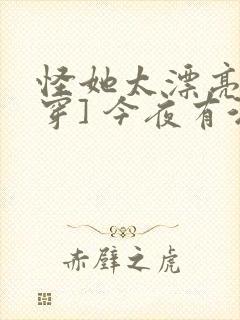 怪她太漂亮
穿] 今夜有
赤壁之虎